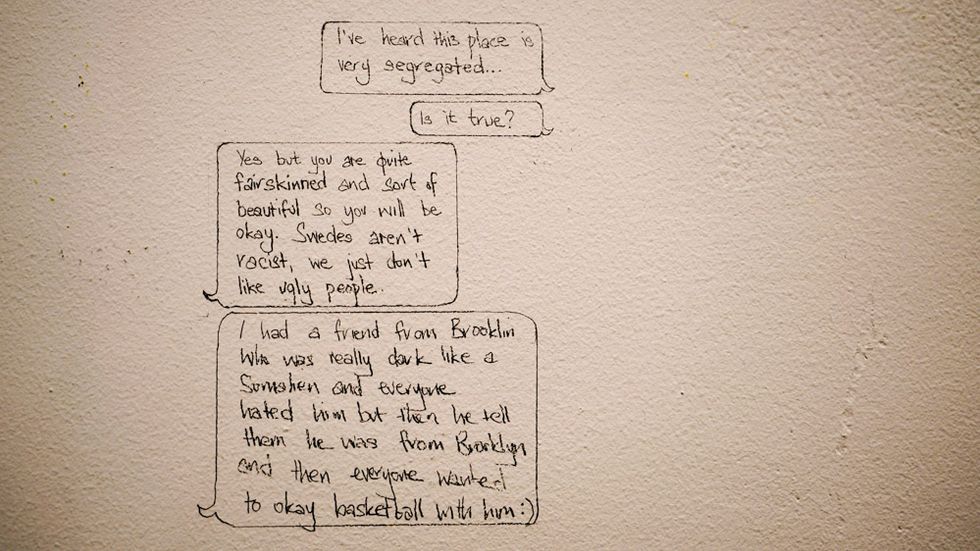 I've heard this place is
very segregated...
Is it true?
Yes but you are quite
fairskinned and sort of
beautiful so you will be
okay. Swedes aren't
racist, we just don't
like ugly people.
I had a friend from Brooklin
who was really dark like a
and everyone
hated him but then he tell
them he was from Brooklyn
and then everyone wanted
to okay basketball with him :)